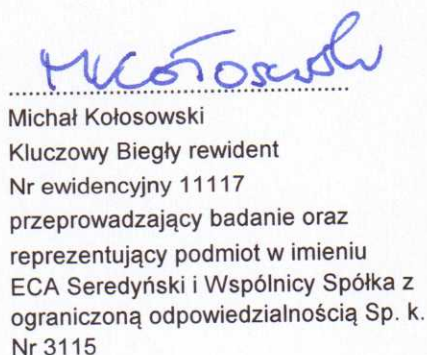 MKołosowski
Michał Kołosowski
Kluczowy Biegły rewident
Nr ewidencyjny 11117
przeprowadzający badanie oraz
reprezentujący podmiot w imieniu
ECA Seredyński i Wspólnicy Spółka z
ograniczoną odpowiedzialnością Sp. k.
Nr 3115